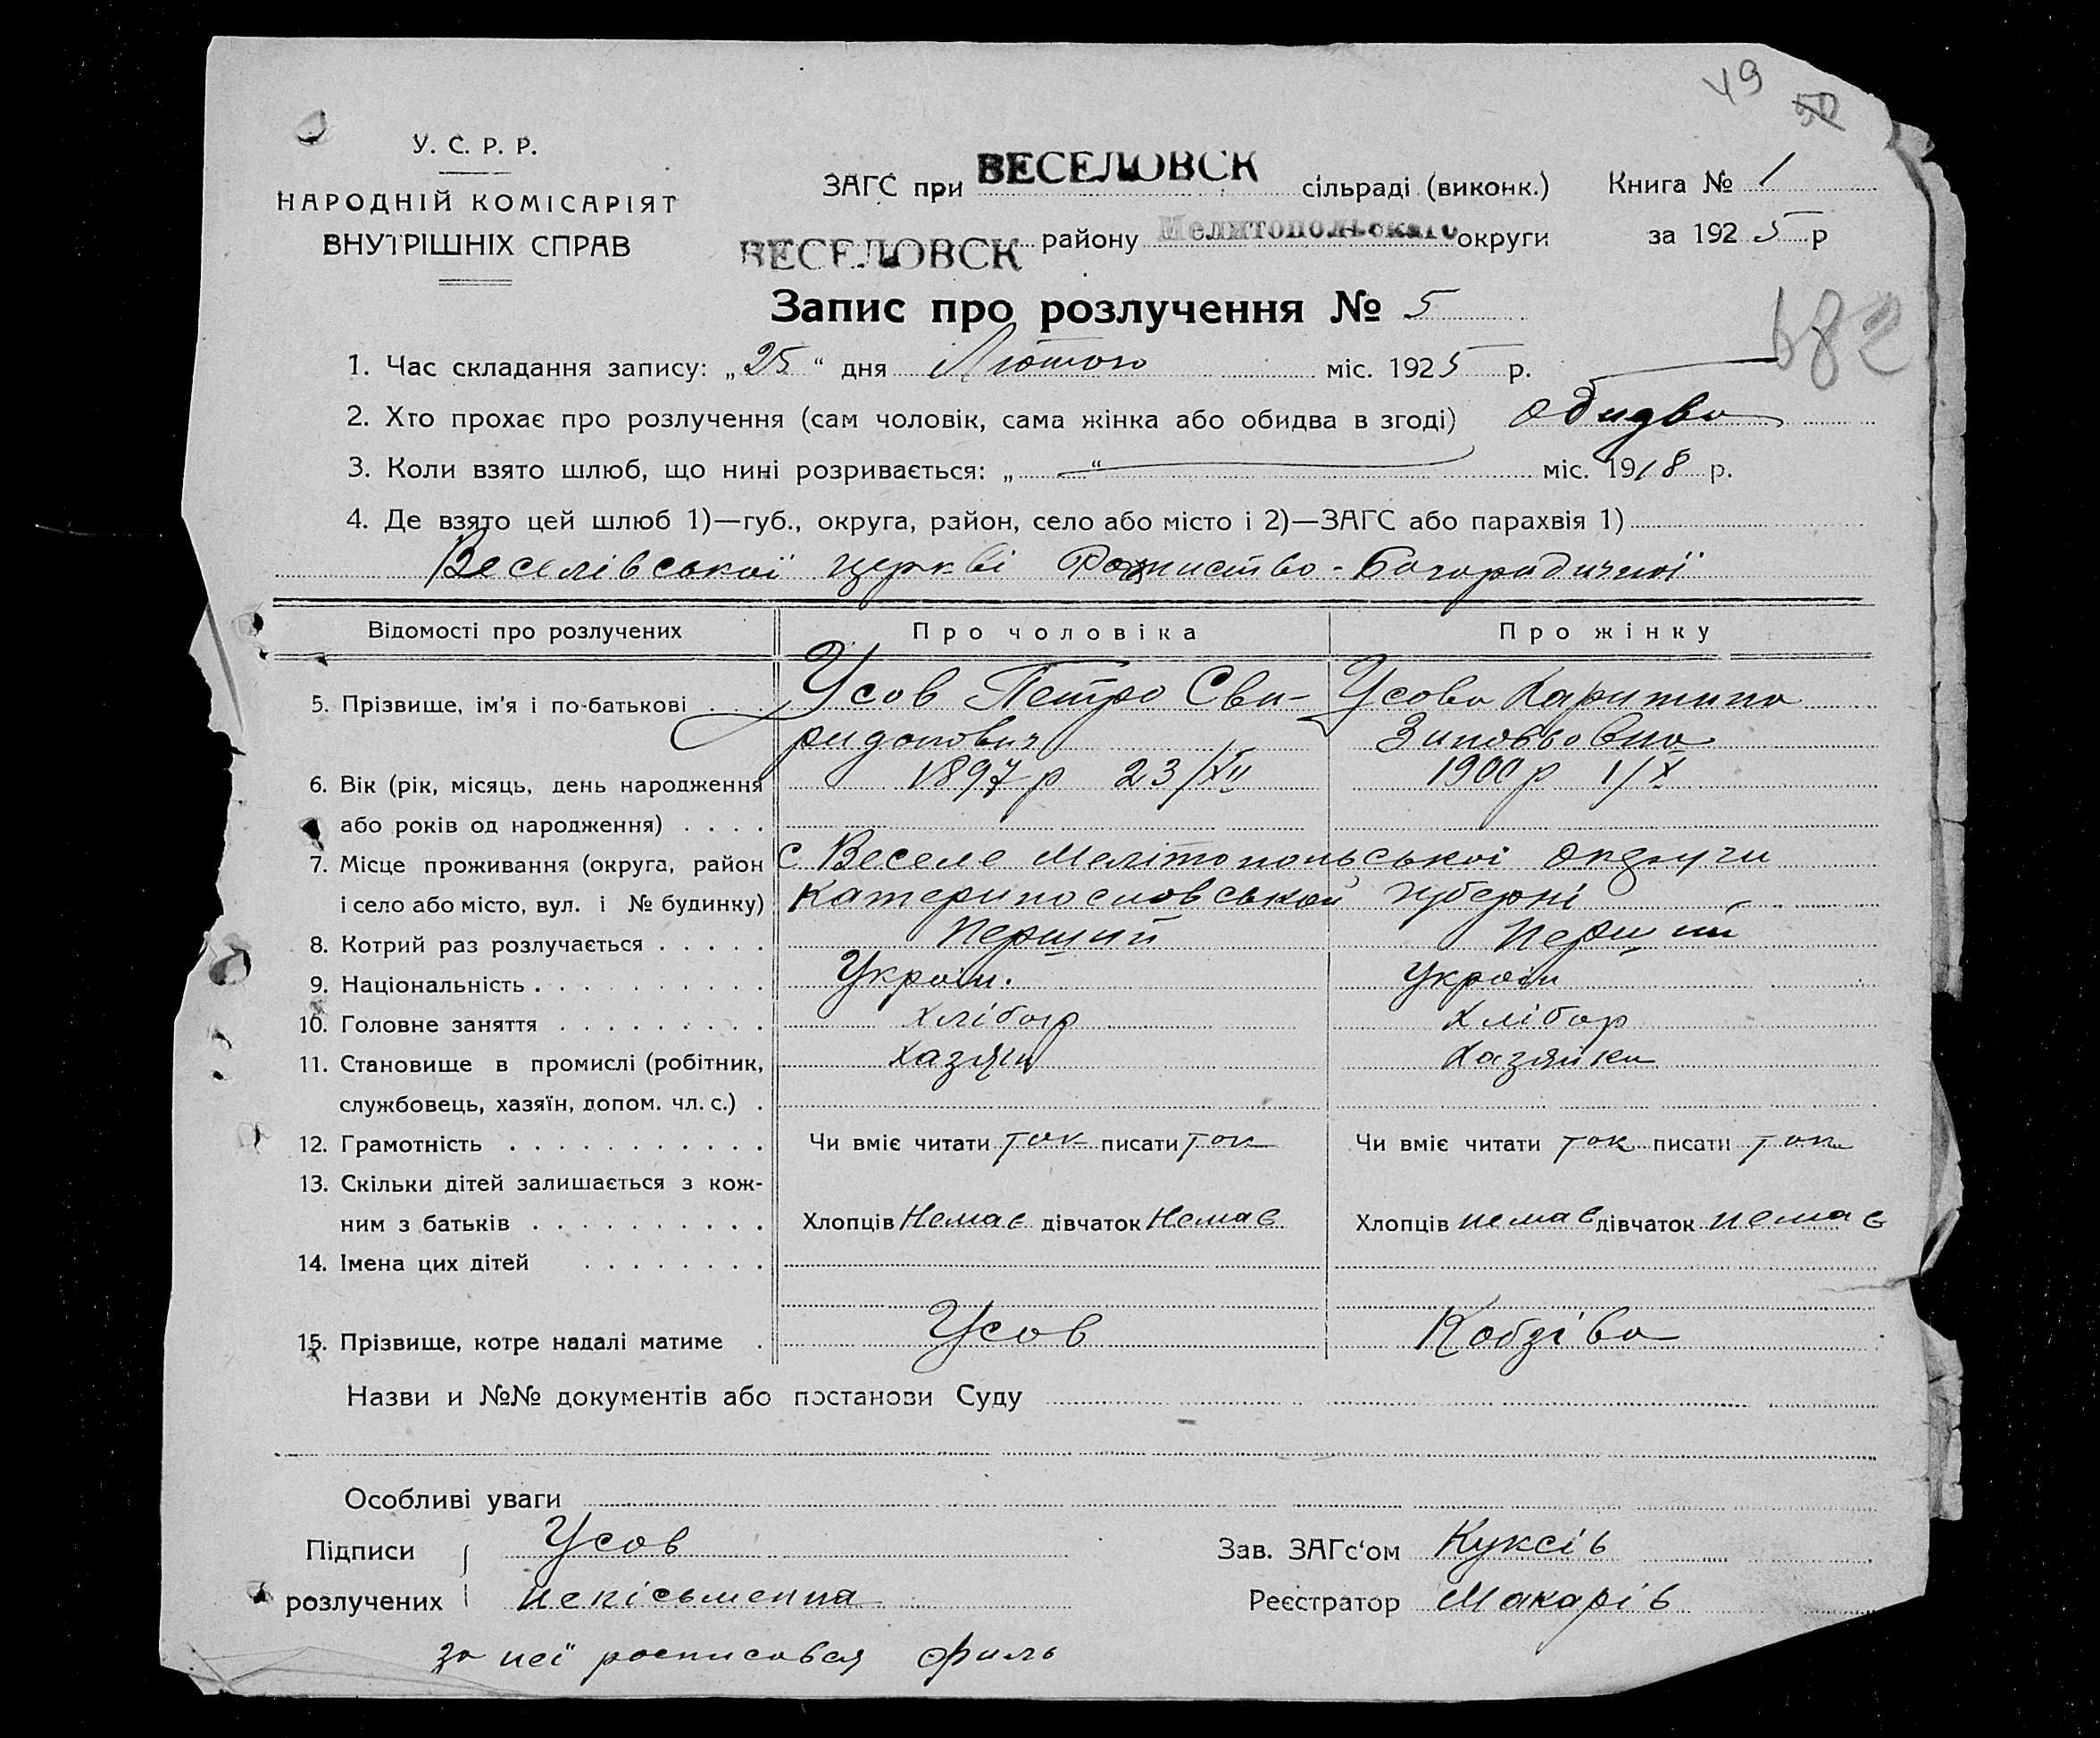 49
50
У. С. Р. Р.
НАРОДНІЙ КОМІСАРІЯТ
ВНУТРІШНІХ СПРАВ
ЗАГС при ВЕСЕЛОВСК сільраді (виконк.) Книга № 1
ВЕСЕЛОВСК району Мелитопольскаго округи за 1925 р
Запис про розлучення № 5
682
1. Час складання запису: „25“ дня Лютого міс. 1925 р.
2. Хто прохає про розлучення (сам чоловік, сама жінка або обидва в згоді) обидва
3. Коли взято шлюб, що нині розривається: „ “ міс. 1918 р.
4. Де взято цей шлюб 1)—губ., округа, район, село або місто і 2)—ЗАГС або парахвія 1)
Веселівської церкві Рожиство-Богородичної
Відомості про розлучених Про чоловіка Про жінку
5. Прізвище, ім'я і по-батькові . . . Усов Петро Сви- Усова Харитина
ридонович Зиновьовна
6. Вік (рік, місяць, день народження 1897 р 23/XII 1900 р 1/X
або років од народження) . . . .
7. Місце проживання (округа, район с Веселе Мелітопольської округи
і село або місто, вул. і № будинку) Катеринославської губерні
8. Котрий раз розлучається . . . . . Перший Перший
9. Національність . . . . . . . . . . Україн. Україн
10. Головне заняття . . . . . . . . . хлібор хлібор
11. Становище в промислі (робітник, хазяїн хазяйка
службовець, хазяїн, допом. чл. с.) .
12. Грамотність . . . . . . . . . . . Чи вміє читати так писати так Чи вміє читати так писати так
13. Скільки дітей залишається з кож-
ним з батьків . . . . . . . . . . Хлопців Немає дівчаток Немає Хлопців немає дівчаток немає
14. Імена цих дітей . . . . . . . .
15. Прізвище, котре надалі матиме . Усов Кобзіва
Назви и №№ документів або постанови Суду
Особливі уваги
Підписи Усов Зав. ЗАГс'ом Куксів
розлучених неписьменна Реєстратор Макарів
за неї росписався Филь